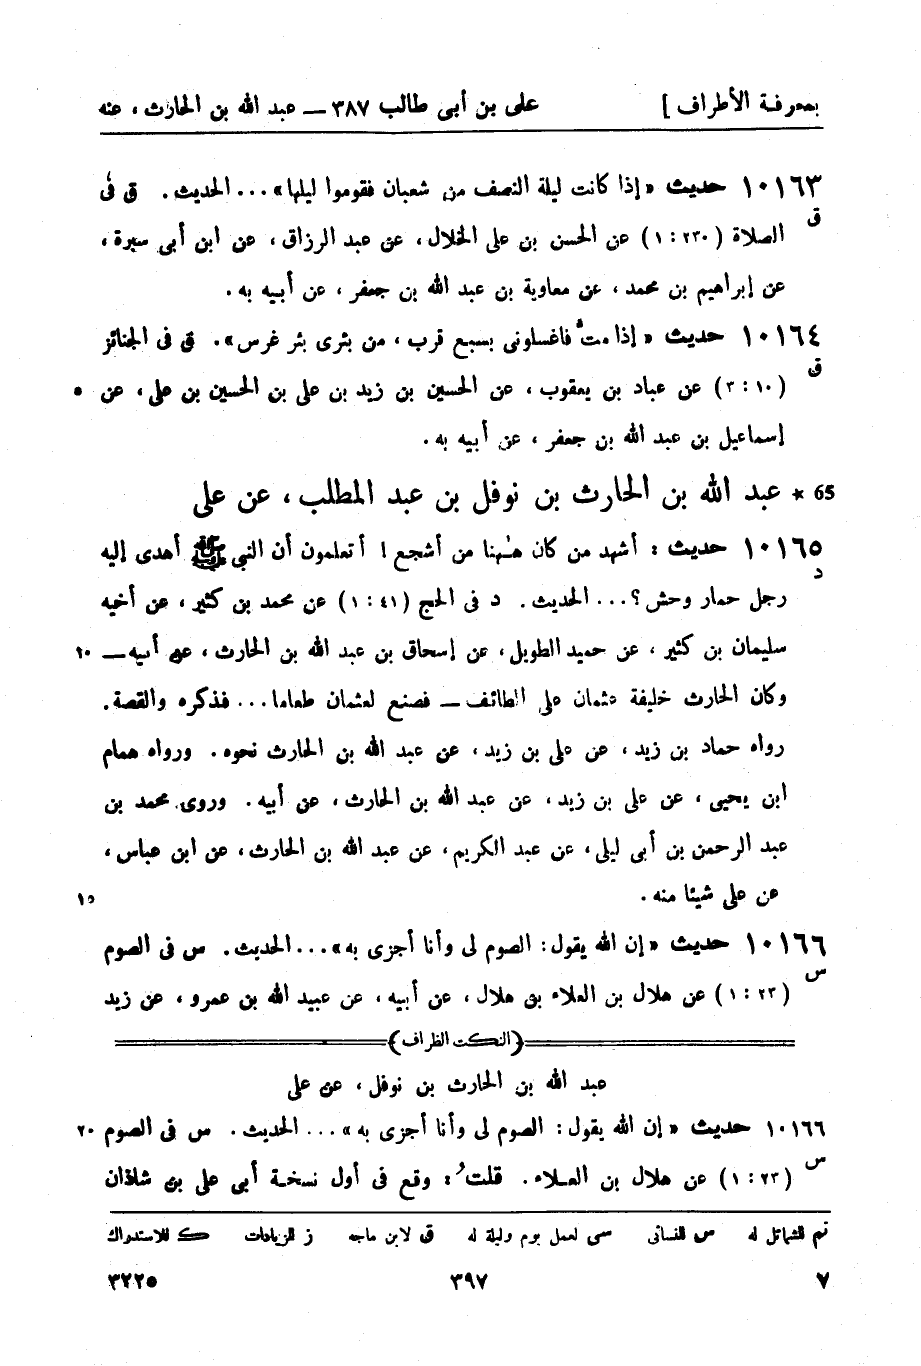 بمعرفة الأطراف ] على بن أبى طالب ٣٨٧ — عبد الله بن الحارث ، عنه
١٠١٦٣ حديث « إذا كانت ليلة النصف من شعبان فقوموا ليلها » ... الحديث . ق فى
ق
الصلاة (٢٣٠ : ١) عن الحسن بن على الخلال ، عن عبد الرزاق ، عن ابن أبى سبرة ،
عن إبراهيم بن محمد ، عن معاوية بن عبد الله بن جعفر ، عن أبيه به .
١٠١٦٤ حديث « إذا مت فاغسلونى بسبع قرب ، من بئرى بئر غرس » . ق فى الجنائز
ق
(١٠ : ٣) عن عباد بن يعقوب ، عن الحسين بن زيد بن على بن الحسين بن على ، عن ٥
إسماعيل بن عبد الله بن جعفر ، عن أبيه به .
65 * عبد الله بن الحارث بن نوفل بن عبد المطلب ، عن على
١٠١٦٥ حديث : أشهد من كان هـٰهنا من أشجع ! أتعلمون أن النبى ﷺ أهدى إليه
د
رجل حمار وحش ؟ ... الحديث . د فى الحج (٤١ : ١) عن محمد بن كثير ، عن أخيه
سليمان بن كثير ، عن حميد الطويل ، عن إسحاق بن عبد الله بن الحارث ، عن أبيه — ١٠
وكان الحارث خليفة عثمان على الطائف — فصنع لعثمان طعاما ... فذكره والقصة .
رواه حماد بن زيد ، عن على بن زيد ، عن عبد الله بن الحارث نحوه . ورواه همام
ابن يحيى ، عن على بن زيد ، عن عبد الله بن الحارث ، عن أبيه . وروى محمد بن
عبد الرحمن بن أبى ليلى ، عن عبد الكريم ، عن عبد الله بن الحارث ، عن ابن عباس ،
عن على شيئا منه . ١٥
١٠١٦٦ حديث « إن الله يقول : الصوم لى وأنا أجزى به » ... الحديث . س فى الصوم
س
(٢٣ : ١) عن هلال بن العلاء بن هلال ، عن أبيه ، عن عبيد الله بن عمرو ، عن زيد
(النكت الظراف)
عبد الله بن الحارث بن نوفل ، عن على
١٠١٦٦ حديث « إن الله يقول : الصوم لى وأنا أجزى به » ... الحديث . س فى الصوم ٢٠
س
(٢٣ : ١) عن هلال بن العلاء . قلتُ : وقع فى أول نسخة أبى على بن شاذان
تم للشمائل له س للنسائى سى لعمل يوم وليلة له ق لابن ماجه ز للزيادات ك للاستدراك
٧ ٣٩٧ ٣٢٢٥